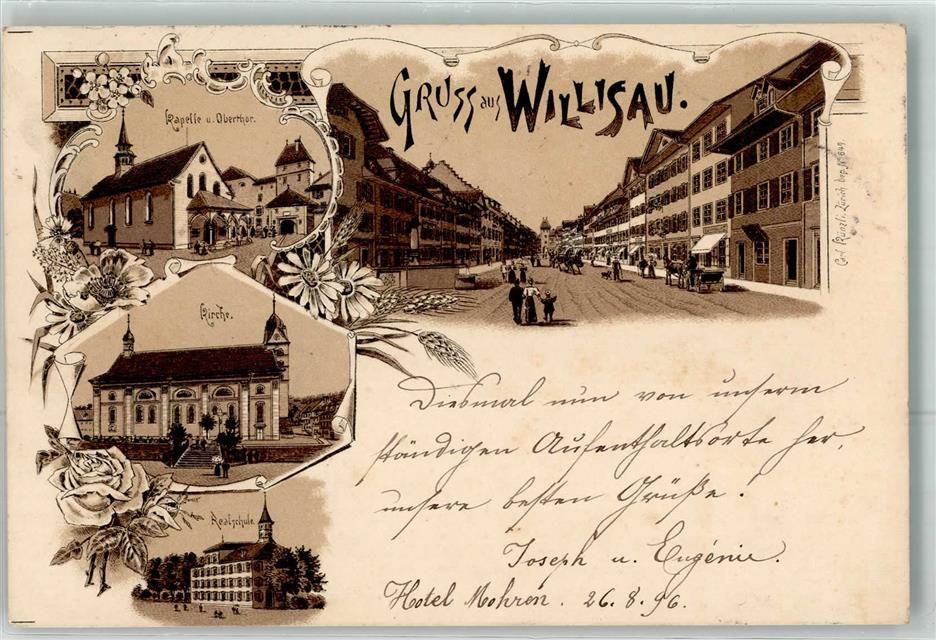 Gruss aus Willisau.
Kapelle u. Oberthor.
Kirche.
Realschule.
Carl Künzli, Zürich dep. No 649.
Diesmal nun von unserm
ständigen Aufenthaltsorte her,
unsere besten Grüße!
Joseph u. Eugénie.
Hotel Mohren. 26.8.96.